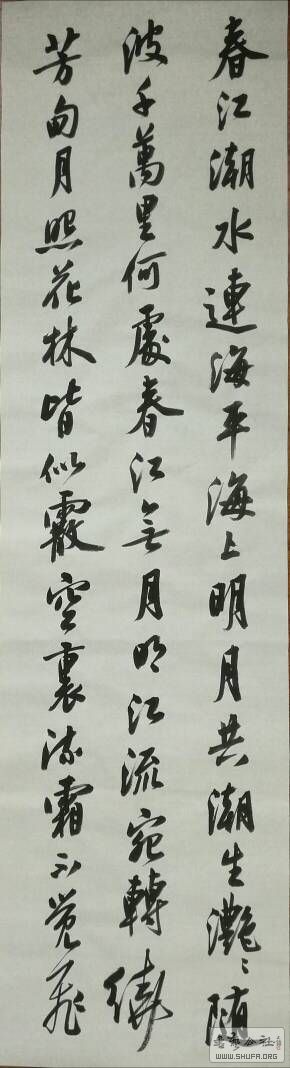 春江潮水連海平海上明月共潮生灔〻随
波千萬里何處春江無月明江流宛轉繞
芳甸月照花林皆似霰空裏流霜不覺飛
書法公社
WWW.SHUFA.ORG